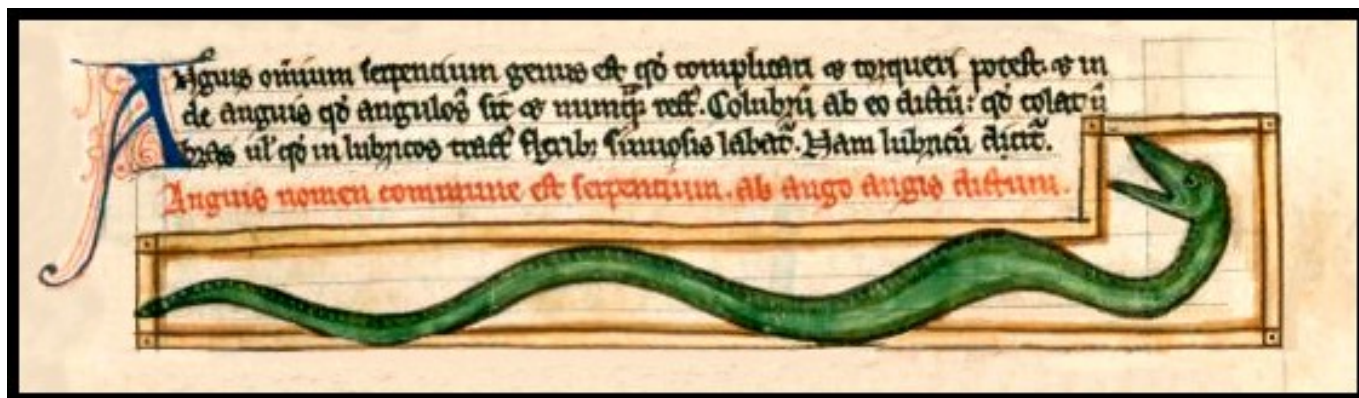 Anguis om̅ium serpentium genus est qd̕ complicari & torqueri potest. & in
de anguis qd̕ angulos̅ sit & numq̅ᵃ rect̕. Colubrū ab eo dictū: qd̕ colat ū
bras ul̕ qd̕ in lubricos tract̕ flexib; sinuosis labat̅. Nam lubricū dicit̅.
Anguis nomen commune est serpentium. ab ango angis dictum.